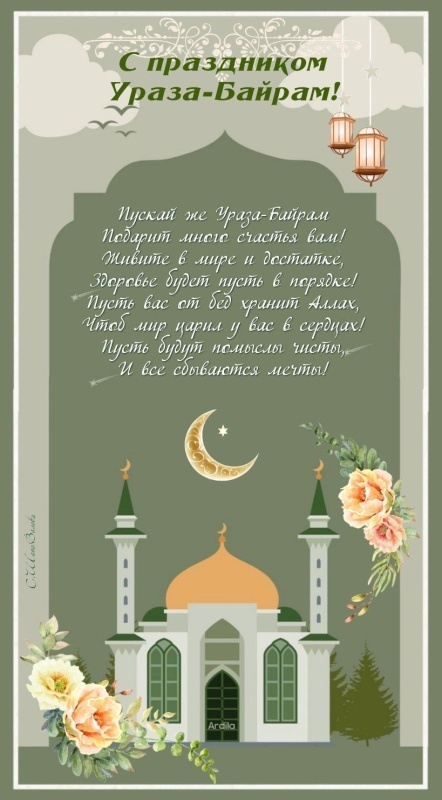 С праздником
Ураза-Байрам!
Пускай же Ураза-Байрам
Подарит много счастья вам!
Живите в мире и достатке,
Здоровье будет пусть в порядке!
Пусть вас от бед хранит Аллах,
Чтоб мир царил у вас в сердцах!
Пусть будут помыслы чисты,
И все сбываются мечты!
Ardilla